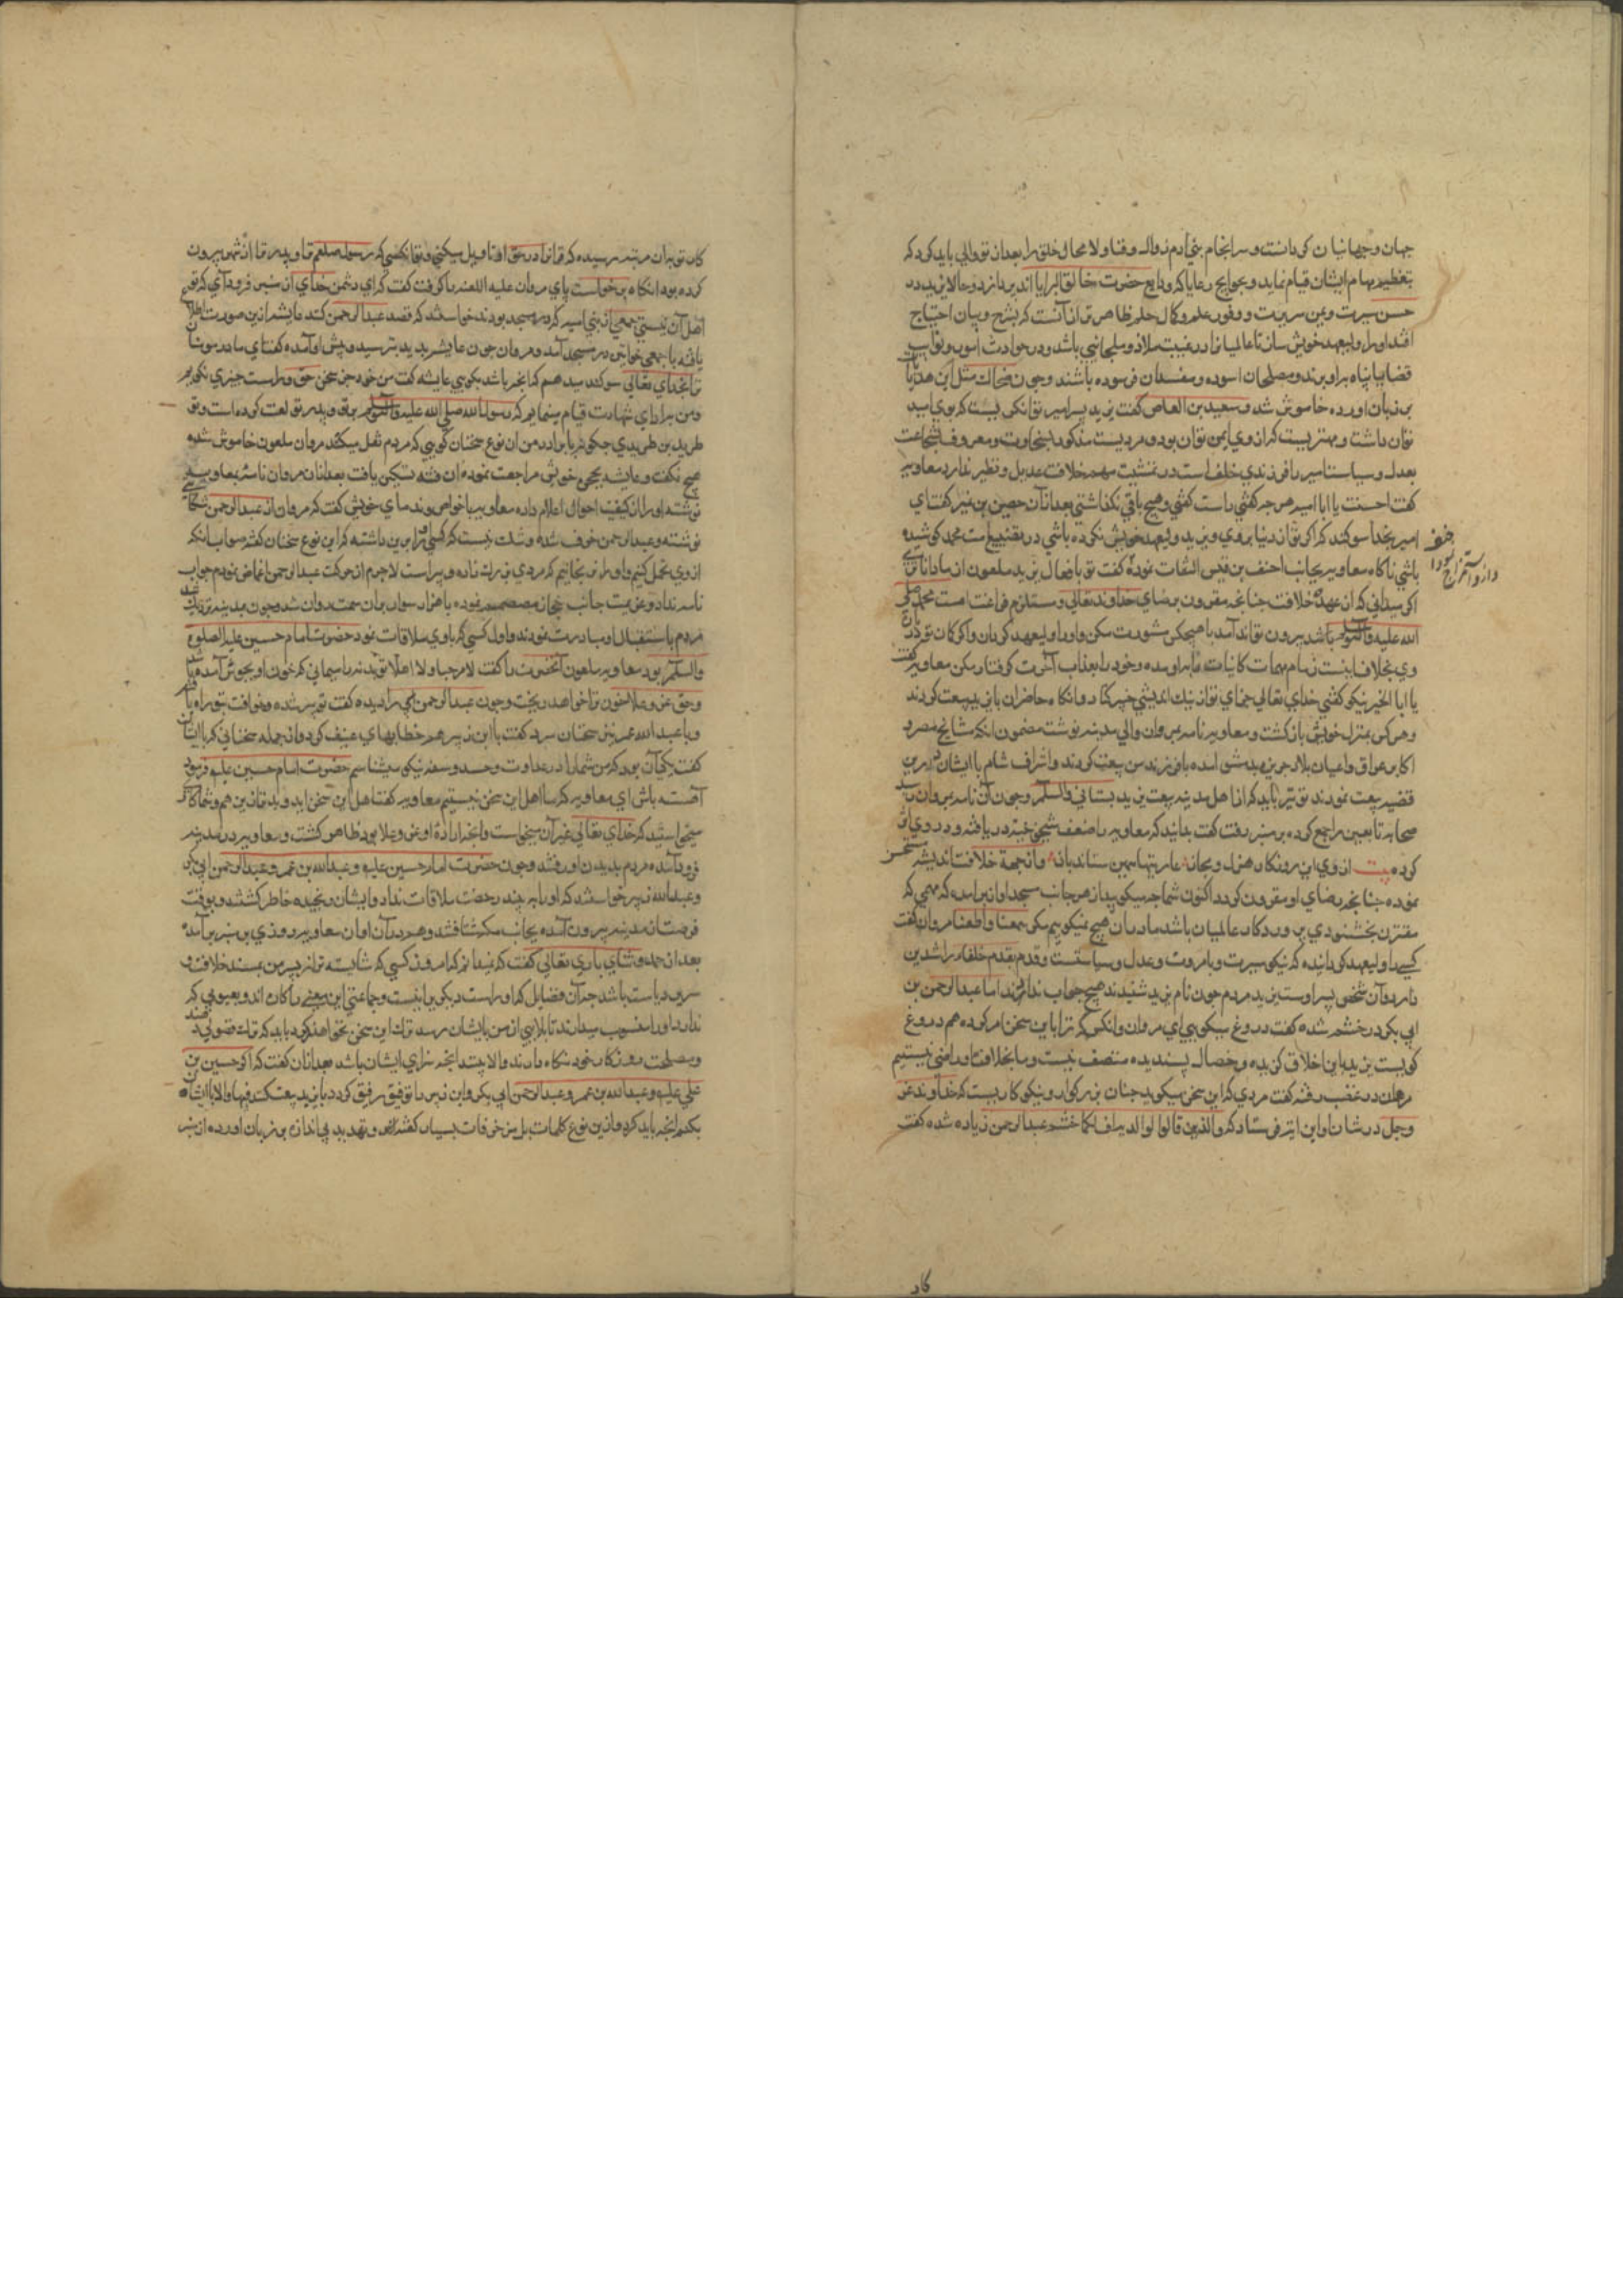 جهان و جهانیان کی دانست و سرانجام بنی آدم زوال و فنا و لا محال خلق را بعد از تو والی باید کرد که
بتعظیم مهام ایشان قیام نماید و بحوایج رعایا که ودایع حضرت خالق البرایا اند پردازد و حالا یزید در
حسن سیرت و یمن سریرت و وفور علم و کمال حلم ظاهرتر از آنست که بشرح و بیان احتیاج
افتد او را ولیعهد خویش سان تا عالمیان را در غیبت ملاذ و ملجائی باشد و در حوادث
قضایا پناه برو برند و مصلحان اسوده و مفسدان فرسوده باشند و چون ضحاک مثل این هذیانات
بر زبان اورده خاموش شد و سعید بن العاص گفت یزید پسر امیر تو آنکس نیست که بوی امید
توان داشت و مهتریست که از وی ایمن توان بود و مردیست مذکور بسخاوت و معروف بشجاعت
بعدل و سیاست امیر را فرزندی خلف است در تمشیت مهم خلافت عدیل و نظیر ندارد معاویه
گفت احسنت یا ابا امیه هر چه گفتی راست گفتی و هیچ باقی نگذاشتی بعد از آن حصین بن نمیر گفت ای
امیر بخدا سوگند که اگر تو از دنیا بروی و یزید ولیعهد خویش نکرده باشی در تضییع امت محمد کوشیده
باشی ناگاه معاویه بجانب احنف بن قیس التفات نموده گفت تو بافعال یزید ملعون از ما داناتری
اگر میدانی که از عهده خلافت چنانچه مقرون برضای خداوند تعالی و مستلزم فراغت امت محمد صلی
الله علیه وآله وسلم باشد بیرون تواند آمد با هیچکس مشورت مکن و او را ولیعهد گردان و اگر گمان تو در باره
وی بخلاف اینست زمام مهمات کاینات را بدو مده و خود را بعذاب آخرت گرفتار مکن معاویه گفت
یا ابا الخیر نیکو گفتی خدای تعالی جزای تو از نیک اندیشی خیر کناد و آنگاه حاضران با یزید بیعت کردند
و هر کس بمنزل خویش بازگشت و معاویه نامه بمروان والی مدینه نوشت مضمون آنکه مشایخ مصر و
اکابر عراق و اعیان بلاد جزیره بدمشق امده با فرزند من بیعت کردند و اشراف شام با ایشان درین
قضیه بیعت نمودند تو نیز باید که از اهل مدینه بیعت یزید بستانی والسلم و چون آن نامه بمروان رسید
صحابه تابعین را جمع کرده بر منبر رفت گفت بدانید که معاویه را ضعف شیخی دریافته و در وی اثر
کرده بیت از وی این روزگار هزل و مجاز عاریتها همین ستاند باز و از جهة خلافت اندیشه مستحسن
نموده چنانچه رضای او مقرون کردد اکنون شما چه میکویید از هر جانب مسجد آواز برآمد که مهمی که
مقترن بخشنودی پروردگار عالمیان باشد ما در آن هیچ نمیگوییم مگر سمعنا و اطعنا مروان گفت
کسی را ولیعهد کردانیده که نیکو سیرت و بامروت و عدل و سیاستست و قدم بقدم خلفاء راشدین
دارد و آن شخص پسر اوست یزید مردم چون نام یزید شنیدند هیچ جواب ندادند اما عبد الرحمن بن
ابی بکر در خشم شده گفت دروغ میگویی ای مروان و آنکس که ترا باین سخن امر کرده هم دروغ
گوست یزید باین اخلاق گزیده و خصال پسندیده متصف نیست و ما بخلافت او راضی نیستیم
مروان در غضب رفته گفت مردی که این سخن میگوید چنان بزرگوار و نیکوکاریست که خداوند عز
وجل در شان او این ایة فرستاد که والذین قالوا لوالدیه اف لکما خشم عبد الرحمن زیاده شده گفت
کار
کار تو بدان مرتبه رسیده که قرآن را در حق ما تاویل میکنی و تو آنکسی که رسول صلعم ترا و پدر ترا از شهر بیرون
کرده بود آنگاه برخواست پای مروان علیه اللعنه را گرفت گفت که ای دشمن خدای از منبر فرود آی که تو
اهل آن نیستی جمعی از بنی امیه که در مسجد بودند خواستند که قصد عبد الرحمن کنند عایشه ازین صورت اطلاع
یافته با جمعی خواتین در مسجد آمد و مروان چون عایشه بدید بترسید و پیش او آمده گفت ای مادر مومنان
ترا بخدای تعالی سوگند میدهم که آنچه راست باشد بگویی عایشه گفت من خود جز سخن حق و راست چیزی نگویم
و من برای شهادت قیام مینمایم که رسول الله صلی الله علیه وآله وسلم بر تو و پدر تو لعنت کرده است و تو
طرید بن طریدی چگونه با برادر من ان نوع سخنان گویی که مردم نقل میکنند مروان ملعون خاموش شده
هیچ نگفت و عایشه بحجره خویش مراجعت نموده ان فتنه تسکین یافت بعد از آن مروان نامه بمعاویه
نوشته او را از کیفیت احوال اعلام داد معاویه با خواص و ندمای خویش گفت که مروان از عبد الرحمن شکایت
نوشته و عبد الرحمن خرف شده و شک نیست که کسی او را برین داشته که این نوع سخنان گفته صواب آنکه
از وی تحمل کنیم و او را نرنجانیم که مردی بزرک زاده و پیر است لاجرم از حرکت عبد الرحمن اغماض نموده جواب
نامه نداد و عزیمت جانب حجاز مصمم نموده با هزار سوار بدان سمت روان شد و چون بمدینه نزدیک شد
مردم باستقبال او مبادرت نمودند و اول کسی که با وی ملاقات نمود حضرت امام حسین علیه الصلوة
والسلم بود معاویه ملعون آنحضرت را گفت لا مرحبا و لا اهلا
و حق عز و علا خون ترا خواهد ریخت و چون عبد الرحمن ابی بکر را دیده گفت تو پیر شده و خرافت بتو راه یافته
و با عبد الله عمر نیز سخنان سرد گفت با ابن زبیر هم خطابهای عنیف کرد و از جمله سخنانی که با ایشان
گفت یکی آن بود که من شما را در عداوت و حسد و سفه نیکو میشناسم حضرت امام حسین علیه فرمود
آهسته باش ای معاویه که ما اهل این سخن نیستیم معاویه گفت اهل این سخن اید و بدتر ازین هم و شما کاری
میخواستید که خدای تعالی غیر آن میخواست و آنچه ارادة او عز و علا بود ظاهر گشت و معاویه در مدینه
فرود آمده مردم بدیدن او رفتند و چون حضرت امام حسین علیه و عبد الله بن عمر و عبد الرحمن ابی بکر
و عبد الله زبیر خواستند که او را به بینند رخصت ملاقات نداد و ایشان رنجیده خاطر گشتند و بوقت
فرصت از مدینه بیرون آمده بجانب مکه شتافتند و هم در آن اوان معاویه روزی بر منبر برآمد
بعد از حمد و ثنای باری تعالی گفت که نمیدانم که امروز کسی که شایسته تر از پسر من بمسند خلافت و
سریر ریاست باشد چه آن فضایل که او راست دیگری را نیست و جماعتی این معنی را کاره اند و بعیوبی که
ندارد او را منسوب میدارند تا بلایی از من بایشان نرسد ترک این سخن نخواهند کرد باید که ترک فضولی دهند
و مصلحت روزگار خود نگاه دارند و الا ببینند آنچه سزای ایشان باشد بعد از آن گفت که اگر حسین بن
علی علیه و عبد الله بن عمر و عبد الرحمن ابی بکر و ابن زبیر را توفیق رفیق کردد با یزید بیعت کنند فبها والا با ایشان
بکنم آنچه باید کرد و ازین نوع کلمات بل مزخرفات بسیار گفته و تهدید بی اندازه بر زبان اورده از منبر